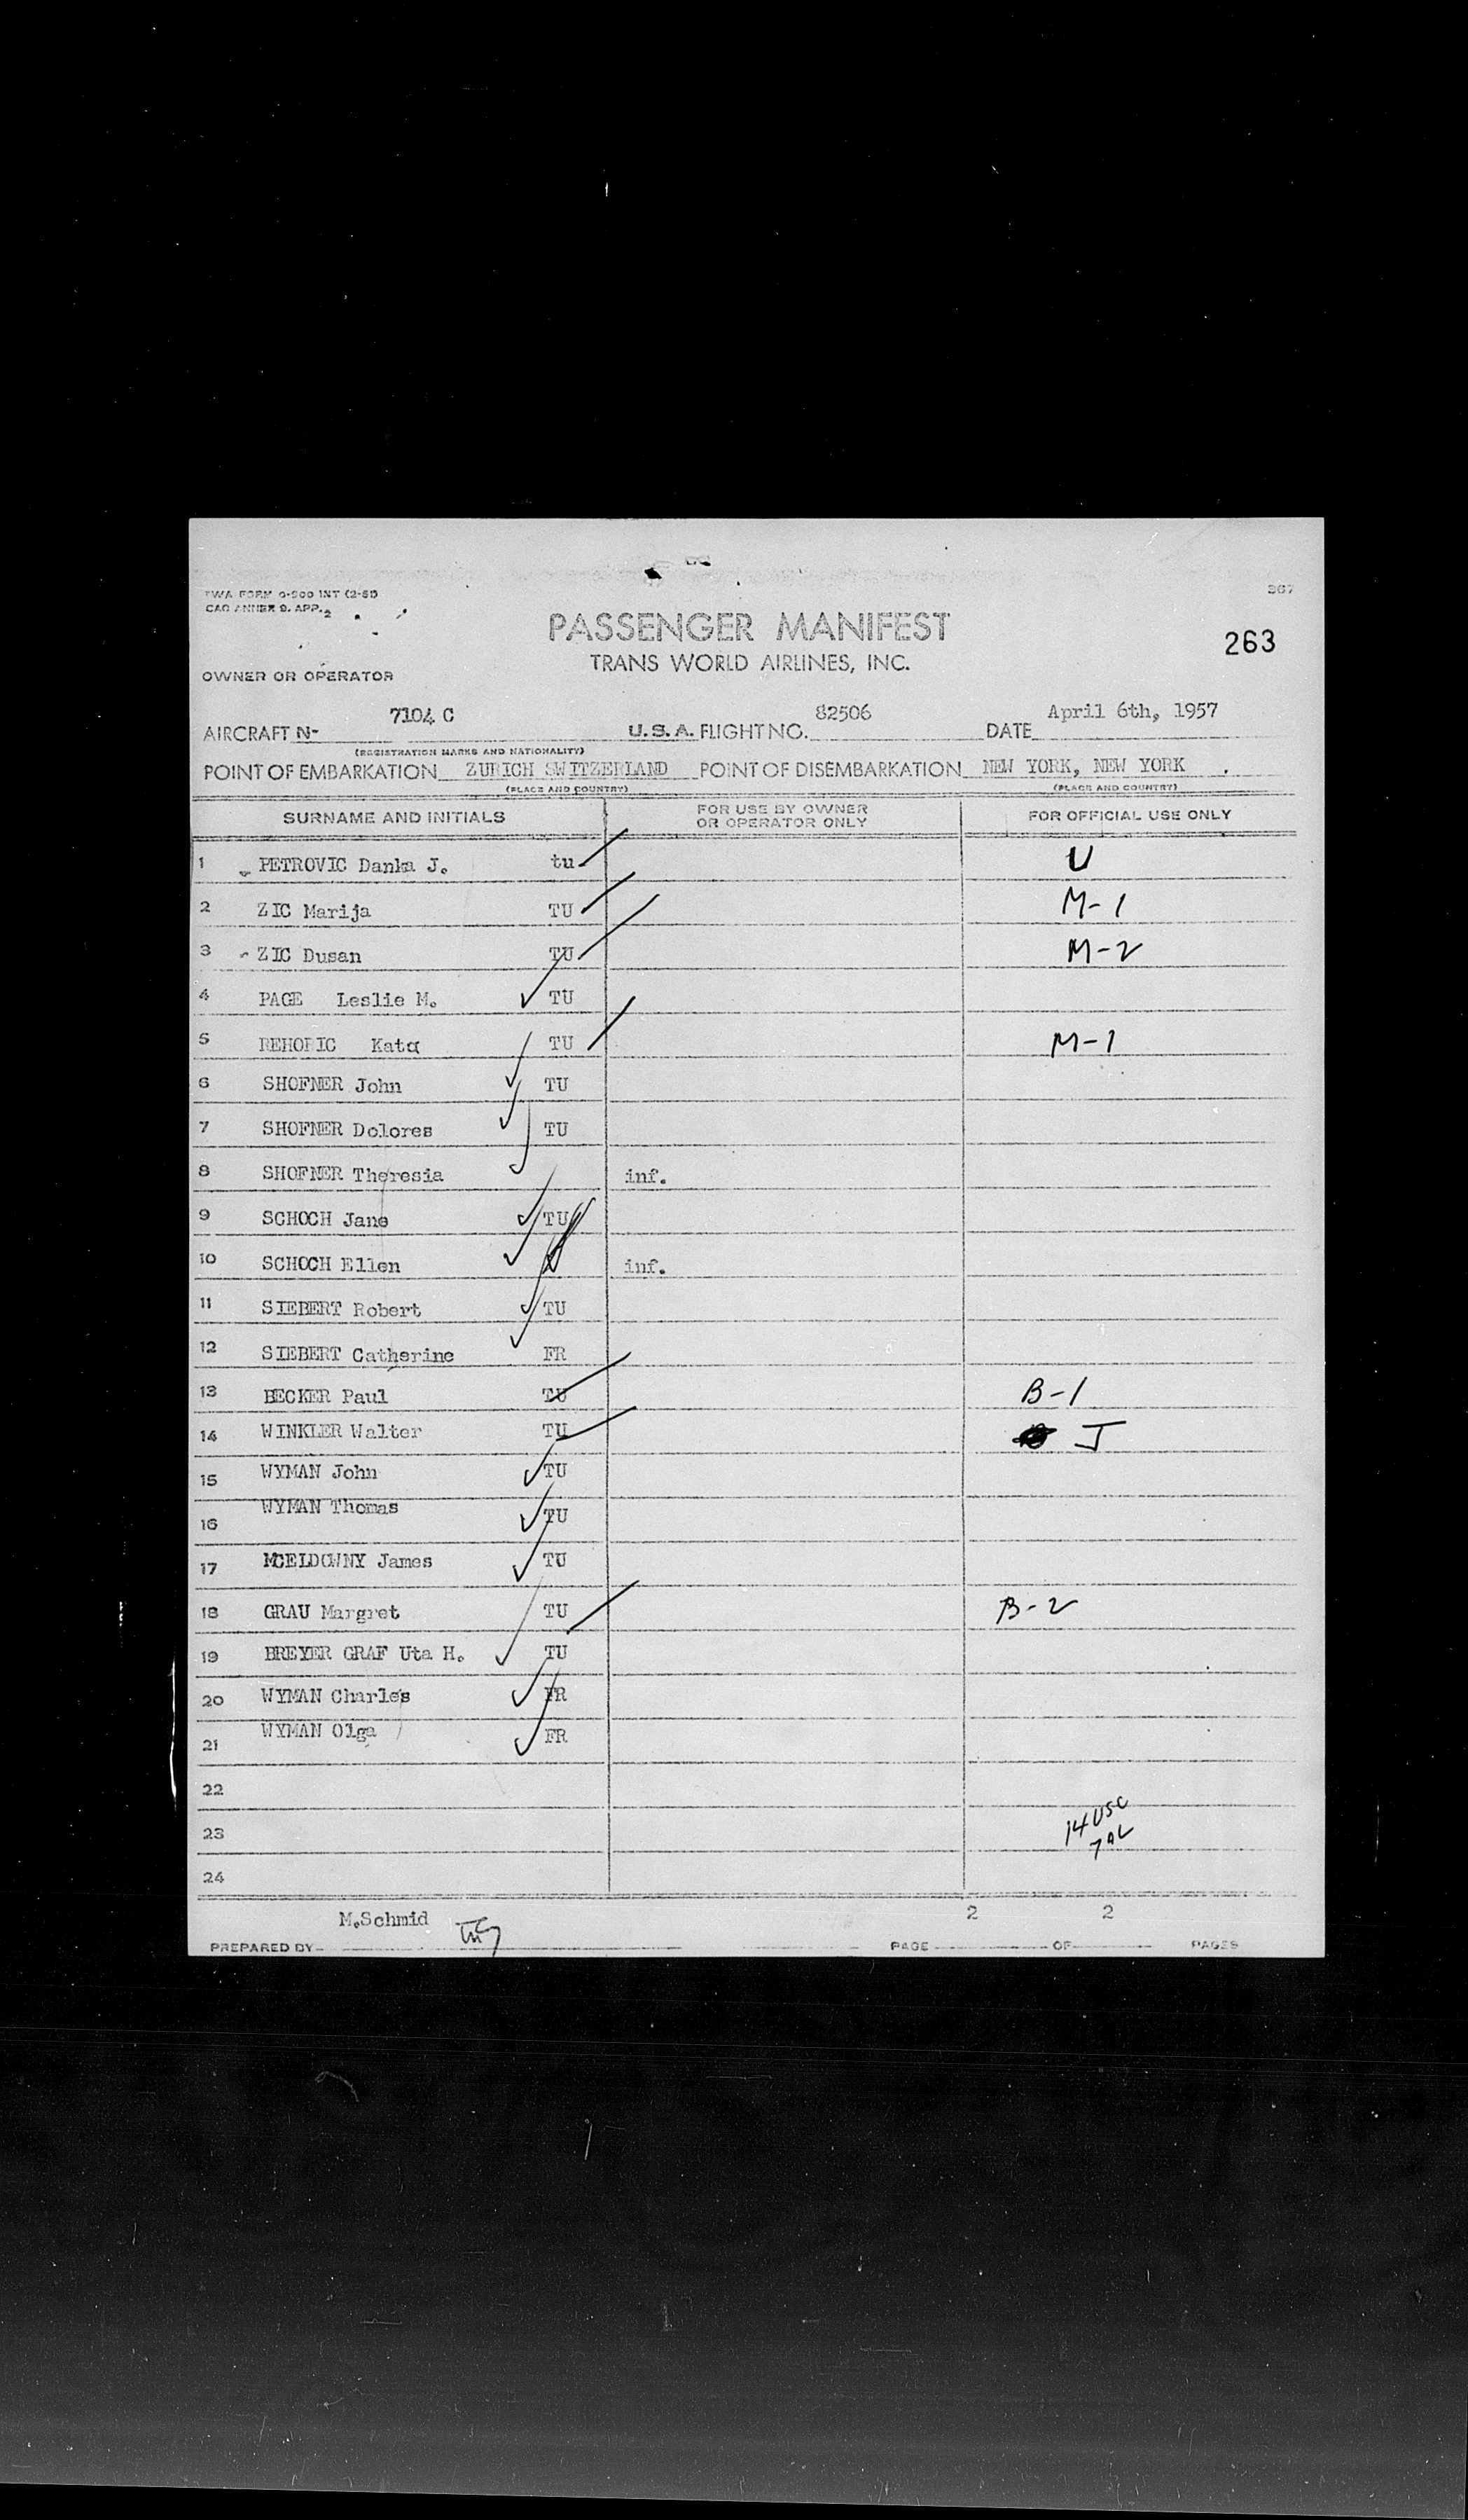 TWA FORM O-900 INT (2-51)
CAO ANNEX 9. APP. 2
367
PASSENGER MANIFEST
263
TRANS WORLD AIRLINES, INC.
OWNER OR OPERATOR
AIRCRAFT N- 7104 C U.S.A. FLIGHT NO. 82506 DATE April 6th, 1957
(REGISTRATION MARKS AND NATIONALITY)
POINT OF EMBARKATION ZURICH SWITZERLAND POINT OF DISEMBARKATION NEW YORK, NEW YORK .
(PLACE AND COUNTRY) (PLACE AND COUNTRY)
SURNAME AND INITIALS FOR USE BY OWNER OR OPERATOR ONLY FOR OFFICIAL USE ONLY
1 PETROVIC Danka J. tu U
2 ZIC Marija TU M-1
3 ZIC Dusan TU M-2
4 PAGE Leslie M. TU
5 REHORIC Kata TU M-1
6 SHOFNER John TU
7 SHOFNER Dolores TU
8 SHOFNER Theresia inf.
9 SCHOCH Jane TU
10 SCHOCH Ellen inf.
11 SIEBERT Robert TU
12 SIEBERT Catherine FR
13 BECKER Paul TU B-1
14 WINKLER Walter TU J
15 WYMAN John TU
16 WYMAN Thomas TU
17 MCELDOWNY James TU
18 GRAU Margret TU B-2
19 BREYER GRAF Uta H. TU
20 WYMAN Charles FR
21 WYMAN Olga FR
22
23 14 USC
7 AL
24
M.Schmid 2 2
PREPARED BY PAGE OF PAGES